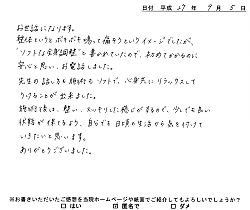 日付 平成 27 年 9月 5日
お世話になります。
整体というとボキボキ鳴って痛そうというイメージでしたが、
"ソフトな全身調整"と書かれていたので、初めてだからこそ
安心と思い、お電話しました。
先生の話し方も施術もソフトで、心身共にリラックスして
うけることが出来ました。
施術後は、軽い、スッキリした感じがするので、少しでも良い
状態が保てるよう、自分でも日頃の生活から気を付けて
いきたいと思います。
ありがとうございました。
※お書きいただいたご感想を当院ホームページや紙面でご紹介してもよろしいでしょうか？
□ はい ☑ 匿名で □ ダメ